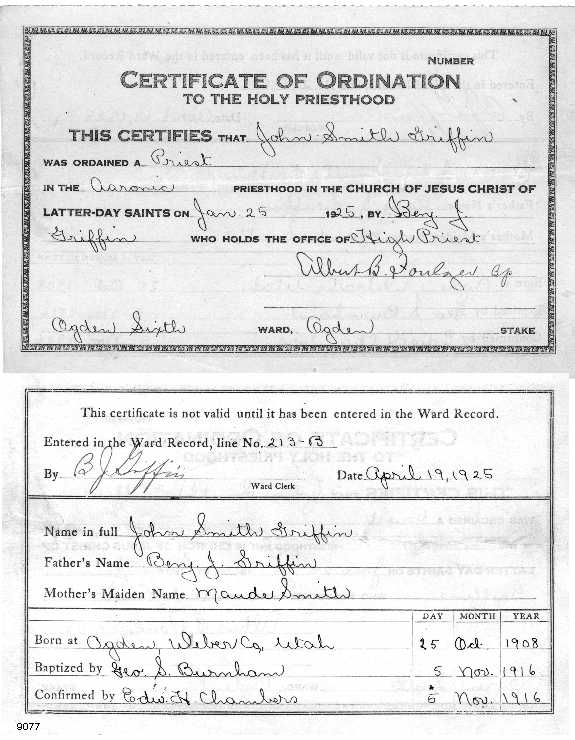 NUMBER
CERTIFICATE OF ORDINATION
TO THE HOLY PRIESTHOOD
THIS CERTIFIES THAT John Smith Griffin
WAS ORDAINED A Priest
IN THE Aaronic PRIESTHOOD IN THE CHURCH OF JESUS CHRIST OF
LATTER-DAY SAINTS ON Jan 25 1925, BY Benj J.
Griffin WHO HOLDS THE OFFICE OF High Priest
Albert B. Foulger
Ogden Sixth WARD, Ogden STAKE
This certificate is not valid until it has been entered in the Ward Record.
Entered in the Ward Record, line No. 213-B
By B J Griffin Date April 19, 1925
Ward Clerk
Name in full John Smith Griffin
Father's Name Benj J. Griffin
Mother's Maiden Name Maude Smith
DAY MONTH YEAR
Born at Ogden, Weber Co, Utah 25 Oct. 1908
Baptized by Geo. S. Burnham 5 Nov. 1916
Confirmed by Edw. H Chambers 5 Nov. 1916
9077